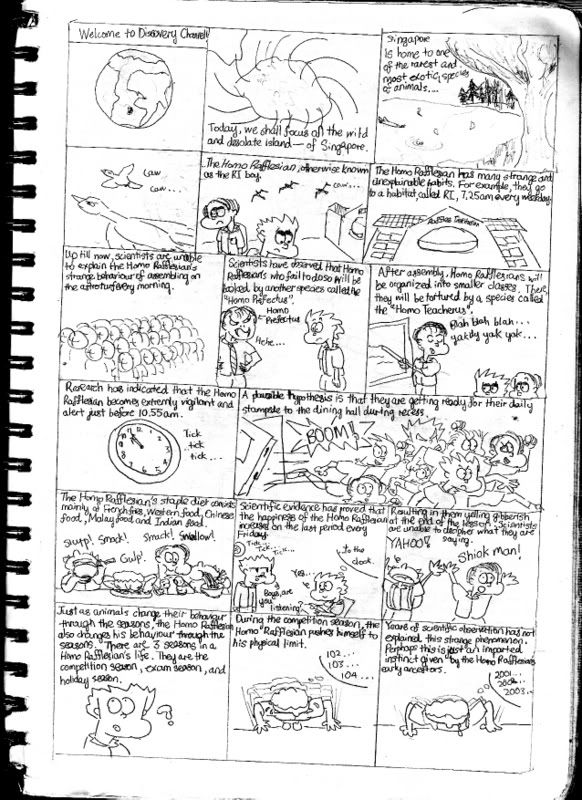 Welcome to Discovery Channel!
Today, we shall focus on the wild
and desolate island — of Singapore.
Singapore
is home to one
of the rarest and
most exotic species
of animals....
caw
caw...
The Homo Rafflesian, otherwise known
as the RI boy.
caw...
The Homo Rafflesian has many strange and
inexplainable habits. For example, they go
to a habitat called RI, 7.25am every weekday.
Raffles Institution
Up till now, scientists are unable
to explain the Homo Rafflesian's
strange behaviour of assembling on
the astroturf every morning.
Scientists have observed that Homo
Rafflesian's who fail to do so will be
booked by another species called the
"Homo Prefectus".
Homo
Prefectus
Hehe...
After assembly, Homo Rafflesians will
be organized into smaller classes. There,
they will be tortured by a species called
the "Homo Teacherus".
Blah blah blah...
yakity yak yak...
Research has indicated that the Homo
Rafflesian becomes extremly vigilant and
alert just before 10.55am.
Tick
..tick
tick....
A plausible hypothesis is that they are getting ready for their daily
stampede to the dining hall during recess.
BOOM!!
The Homo Rafflesian's staple diet consists
mainly of French fries, Western food, Chinese
food, Malay food and Indian food.
Slurp! Smack!
Smack! Swallow!
Gulp!
Scientific evidence has proved that
the happiness of the Homo Rafflesian
increases on the last period every
Friday.
Tick
Tick...
Yes...
..to the
clock.
Boys, are
you
listening?
Resulting in them yelling gibberish
at the end of the lesson. Scientists
are unable to decipher what they are
saying.
YAHOO!!
Shiok man!
Just as animals change their behaviour
through the seasons, the Homo Rafflesian
also changes his behaviour through the
seasons. There are 3 seasons in a
Homo Rafflesian's life. They are the
competition season, exam season, and
holiday season.
?
?
During the competition season, the
Homo Rafflesian pushes himself to
his physical limit.
102...
103...
104...
Years of scientific observation has not
explained this strange phenomenon.
Perhaps this is just an imported
instinct given by the Homo Rafflesian's
early ancestors.
2001...
2002...
2003...